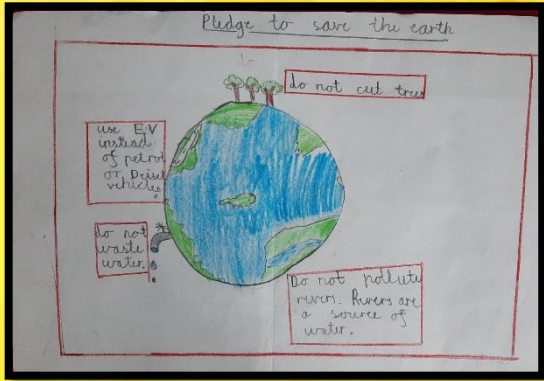 Pledge to save the earth
do not cut trees
use EV
instead
of petrol
or Deisel
vehicles.
do not
waste
water.
Do not pollute
rivers. Rivers are
a source of
water.